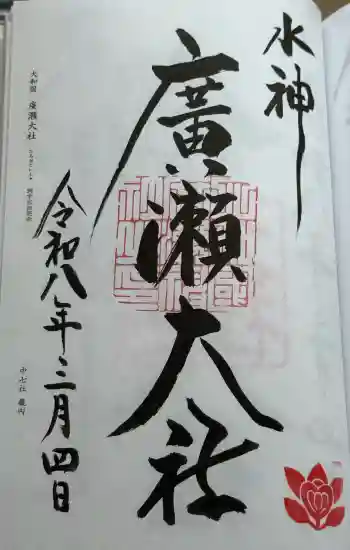 水神
廣瀬大社
大和国 廣瀬大社
令和八年三月四日
中七社